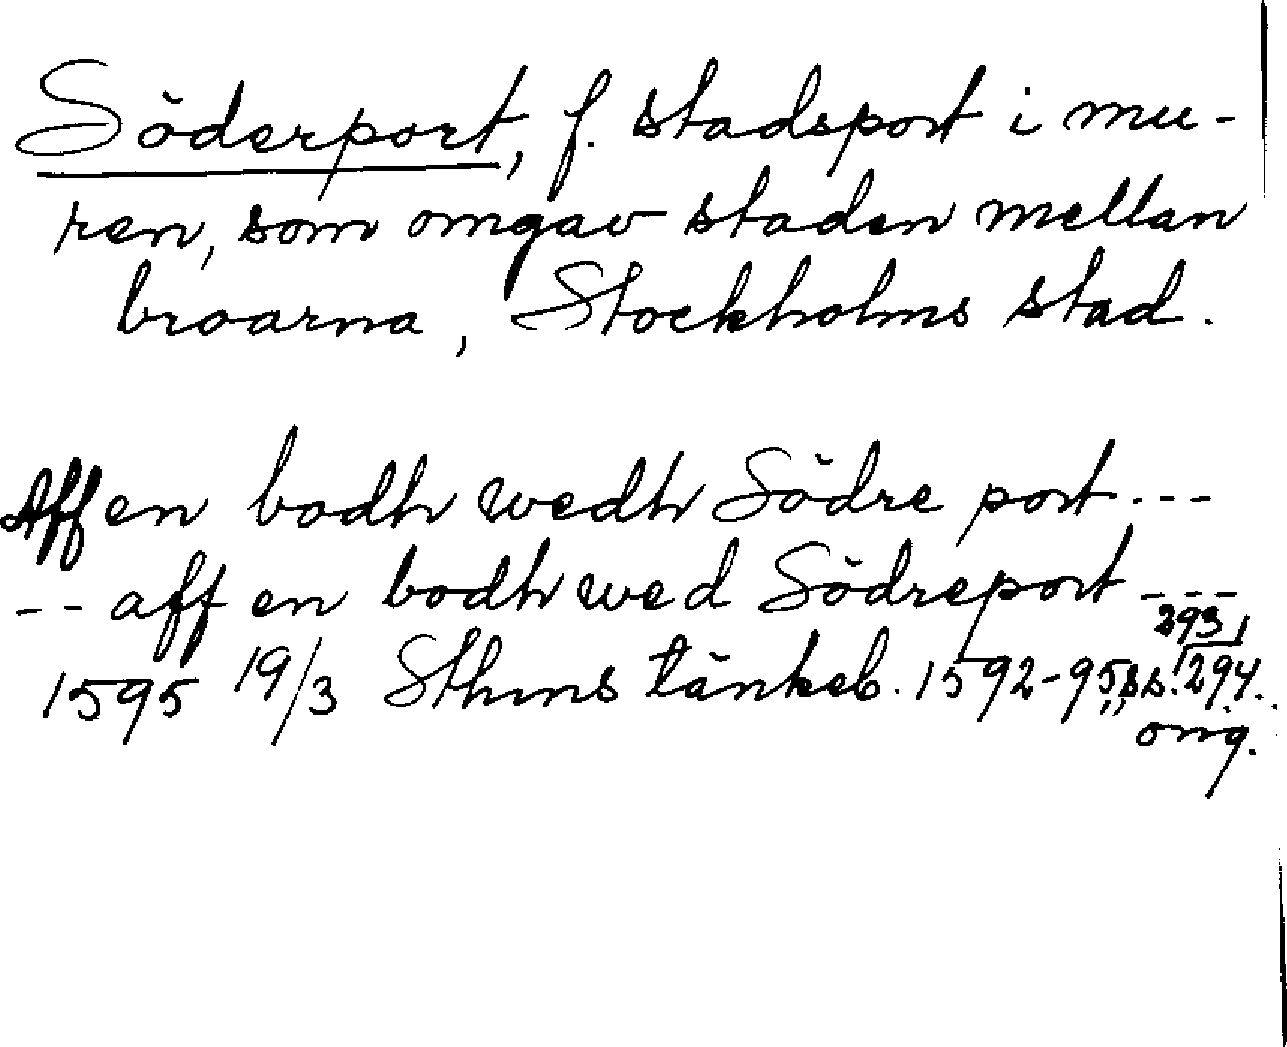 Söderport, f. stadsport i mu-
ren, som omgav staden mellan
broarna, Stockholms stad.
Aff en bodh wedh Södre port ---
-- aff en bodh wed Södreport ---
293,
1595 19/3 Sthms tänkeb. 1592-95, ss. 294.
orig.